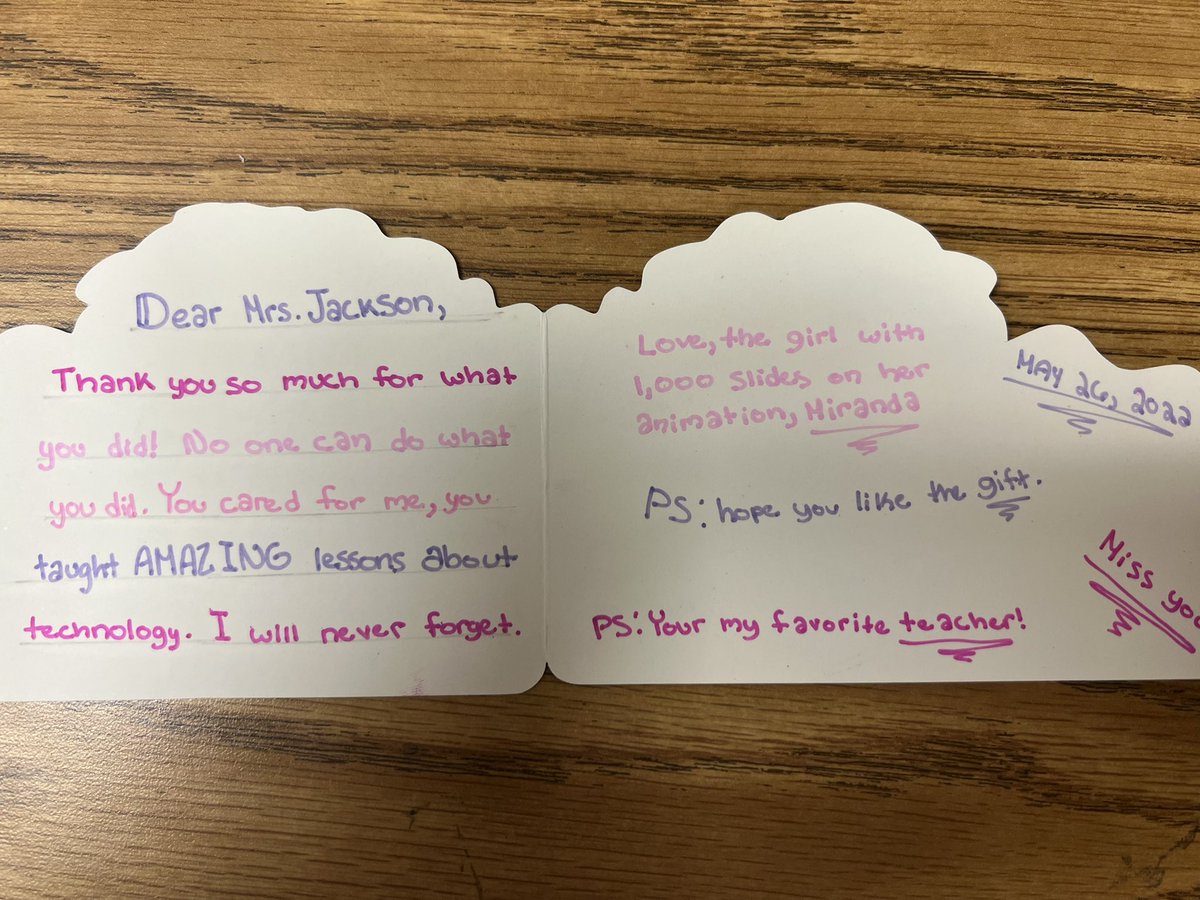 Dear Mrs. Jackson,
Thank you so much for what
you did! No one can do what
you did. You cared for me, you
taught AMAZING lessons about
technology. I will never forget.
Love, the girl with
1,000 slides on her
animation, Miranda
MAY 26, 2022
PS: hope you like the gift.
Miss you
PS: Your my favorite teacher!